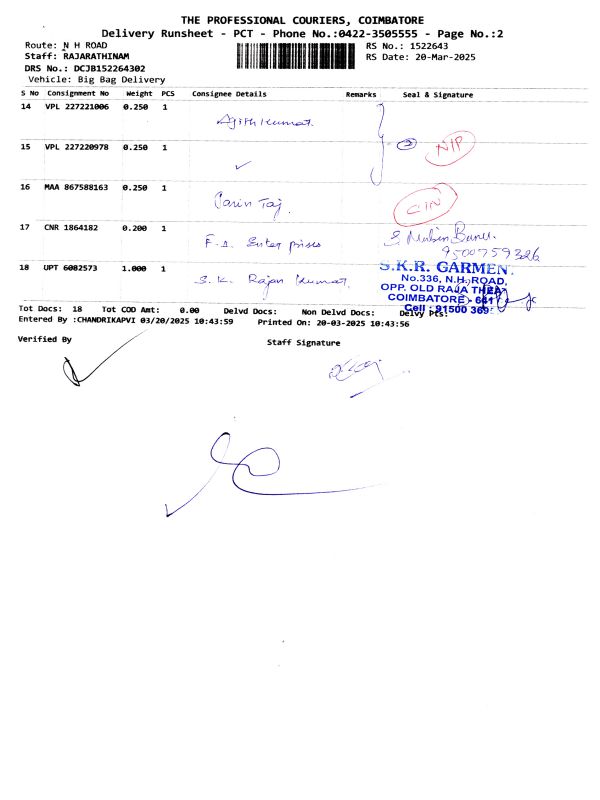 THE PROFESSIONAL COURIERS, COIMBATORE
Delivery Runsheet - PCT - Phone No.:0422-3505555 - Page No.:2
Route: N H ROAD RS No.: 1522643
Staff: RAJARATHINAM RS Date: 20-Mar-2025
DRS No.: DCJB152264302
Vehicle: Big Bag Delivery
S No Consignment No Weight PCS Consignee Details Remarks Seal & Signature
14 VPL 227221006 0.250 1 Ajith Kumar.
15 VPL 227220978 0.250 1 N/P
16 MAA 867588163 0.250 1 Parin Taj.
17 CNR 1864182 0.200 1 F.S. Enter prises S. Mubin Banu.
9500759326
18 UPT 6082573 1.000 1 S.K. Rajan Kumar.
S.K.R. GARMEN
No.336, N.H. ROAD,
OPP. OLD RAJA THEA
COIMBATORE - 641
Cell : 91500 369
Tot Docs: 18 Tot COD Amt: 0.00 Delvd Docs: Non Delvd Docs: Delvy Pts:
Entered By :CHANDRIKAPVI 03/20/2025 10:43:59 Printed On: 20-03-2025 10:43:56
Verified By Staff Signature